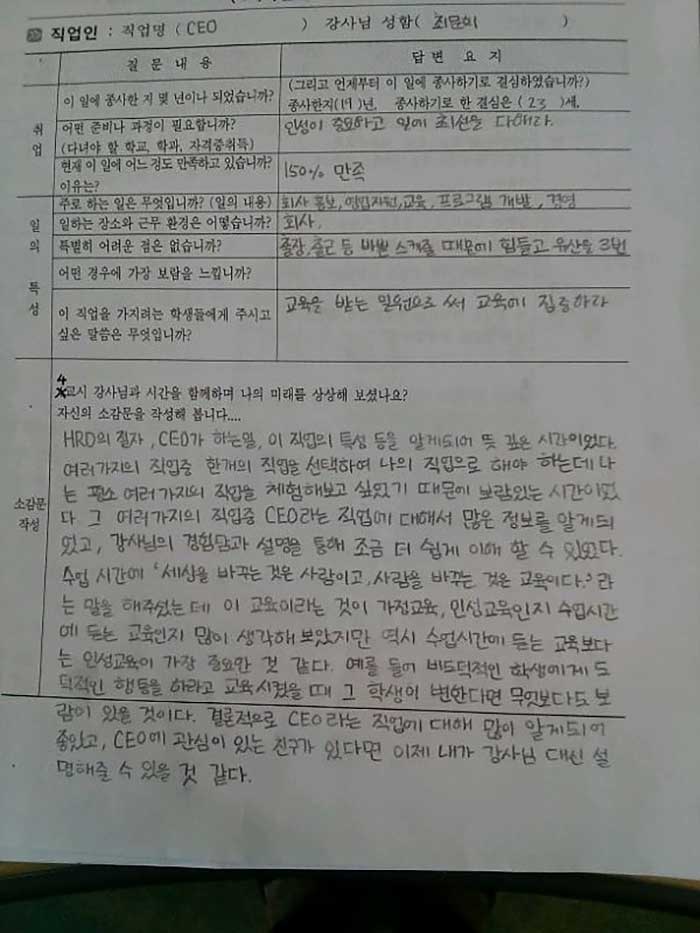 직업인 : 직업명 ( CEO ) 강사님 성함( 최문희 )
질 문 내 용 답 변 요 지
취업
이 일에 종사한 지 몇 년이나 되었습니까? (그리고 언제부터 이 일에 종사하기로 결심하였습니까?)
종사한지( )년, 종사하기로 한 결심은 ( 23 )세.
어떤 준비나 과정이 필요합니까? 인성이 중요하고 일에 최선을 다해라.
(다녀야 할 학교, 학과, 자격증취득)
현재 이 일에 어느 정도 만족하고 있습니까? 150% 만족
이유는?
일의 특성
주로 하는 일은 무엇입니까? (일의 내용) 회사 홍보, 영업지원, 교육, 프로그램 개발, 경영
일하는 장소와 근무 환경은 어떻습니까? 회사.
특별히 어려운 점은 없습니까? 출장, 출근 등 바쁜 스케줄 때문에 힘들고 유산을 3번
어떤 경우에 가장 보람을 느낍니까?
이 직업을 가지려는 학생들에게 주시고 교육을 받는 일원으로 써 교육에 집중하라
싶은 말씀은 무엇입니까?
소감문 작성
4교시 강사님과 시간을 함께하며 나의 미래를 상상해 보셨나요?
자신의 소감문을 작성해 봅니다....
HRD의 점자, CEO가 하는일, 이 직업의 특성 등을 알게되어 뜻 깊은 시간이었다.
여러가지의 직업중 한개의 직업을 선택하여 나의 직업으로 해야 하는데 나
는 평소 여러가지의 직업을 체험해보고 싶었기 때문에 보람있는 시간이었
다 그 여러가지의 직업중 CEO라는 직업에 대해서 많은 정보를 알게되
었고, 강사님의 경험담과 설명을 통해 조금 더 쉽게 이해 할 수 있었다.
수업 시간에 '세상을 바꾸는 것은 사람이고, 사람을 바꾸는 것은 교육이다.' 라
는 말을 해주셨는데 이 교육이라는 것이 가정교육, 인성교육인지 수업시간
에 듣는 교육인지 많이 생각해 보았지만 역시 수업시간에 듣는 교육보다
는 인성교육이 가장 중요한 것 같다. 예를 들어 비도덕적인 학생에게 도
덕적인 행동을 하라고 교육시켰을 때 그 학생이 변한다면 무엇보다도 보
람이 있을 것이다. 결론적으로 CEO라는 직업에 대해 많이 알게되어
좋았고, CEO에 관심이 있는 친구가 있다면 이제 내가 강사님 대신 설
명해줄 수 있을 것 같다.